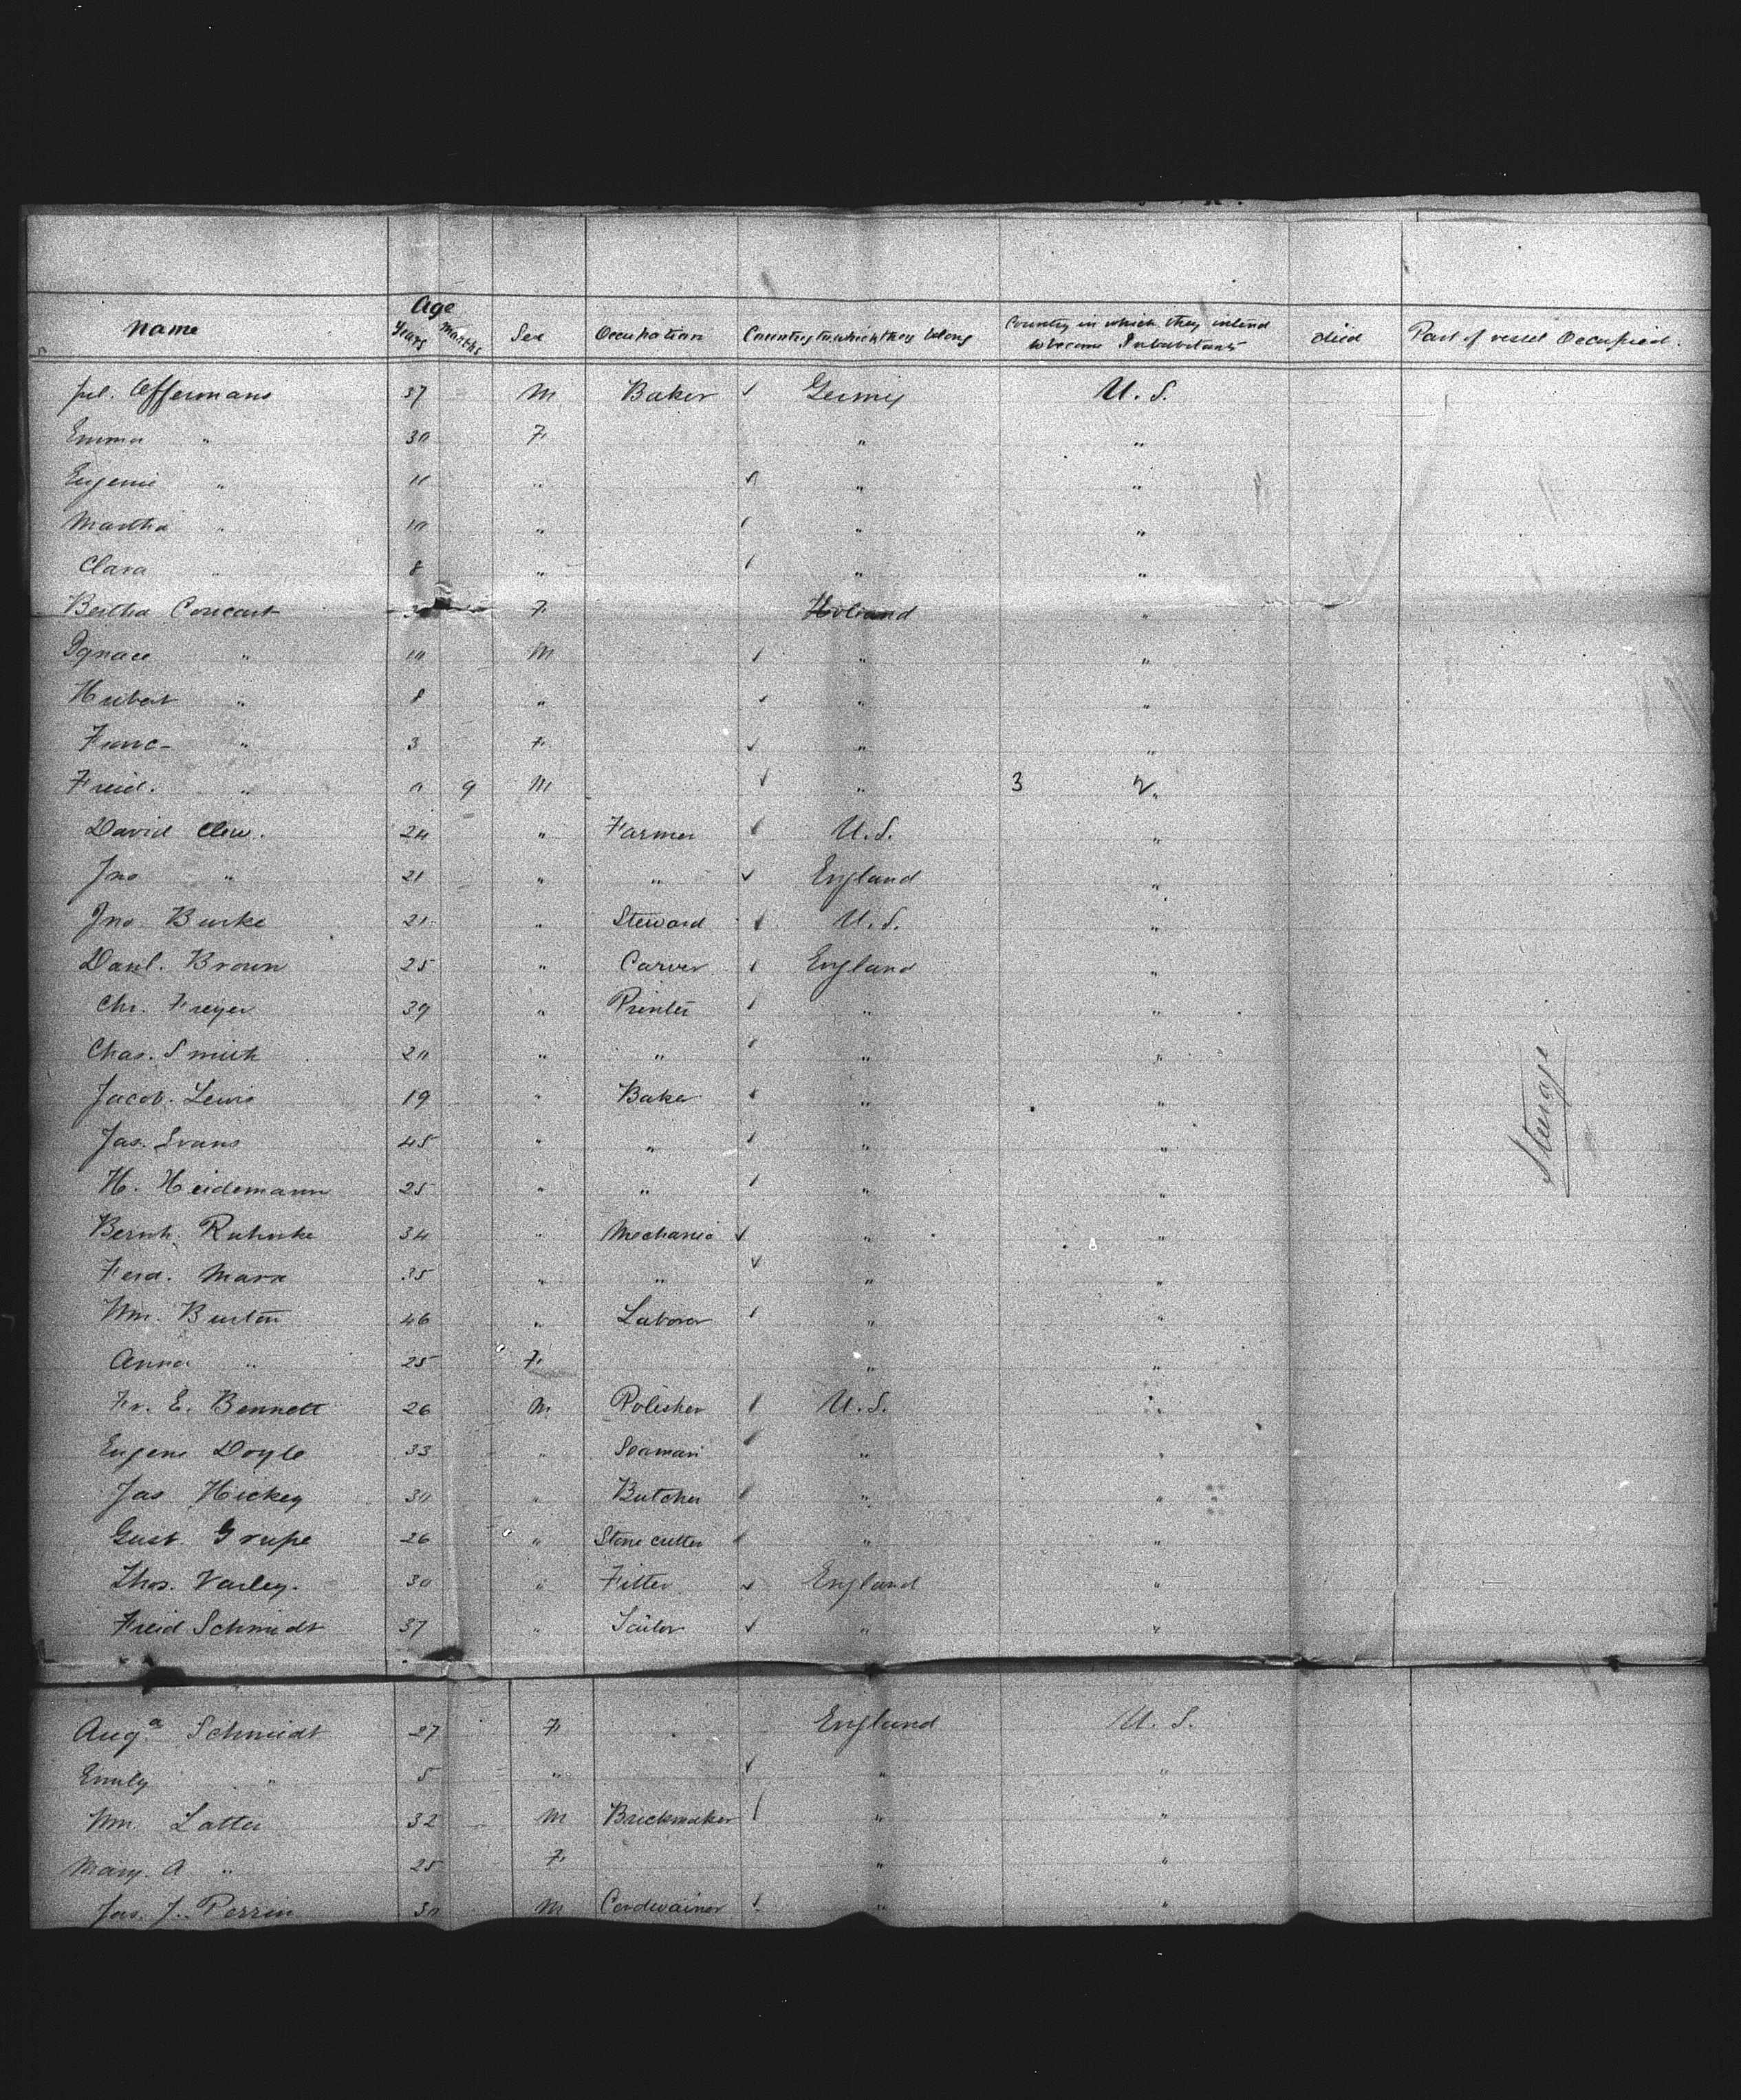 Name Age Years Months Sex Occupation Country to which they belong Country in which they intend to become Inhabitants died Part of vessel Occupied.
Jul. Offermans 37 M Baker Germy U.S.
Emma " 30 F " "
Eugenie " 11 " " "
Martha " 10 " " "
Clara " 8 " " "
Bertha Concart F Holland "
Ignace " 10 M " "
Hubert " 8 " " "
Franc- " 3 F " "
Freid. " 0 9 M " 3 2 "
David Clew. 24 " Farmer U.S. "
Jno " 21 " " England "
Jno. Burke 21 " Steward U.S. "
Danl. Brown 25 " Carver England "
Chr. Freyer 39 " Printer " "
Chas. Smith 20 " " " "
Jacob. Lewis 19 " Baker " "
Jas. Evans 45 " " " "
H. Heidemann 25 " " " "
Bernh. Ruhnke 34 " Mechanic " "
Ferd. Marx 35 " " " "
Wm. Burton 46 " Laborer " "
Anna " 25 F " "
Fr. E. Bennett 26 M Polisher U.S. "
Eugene Doyle 33 " Seaman " "
Jas Hickey 30 " Butcher " "
Gust. Grupe 26 " Stone cutter " "
Thos. Varley. 30 " Fitter England "
Freid Schmidt 37 " Tailor " "
Steerage
Auga Schmidt 27 F England U.S.
Emily " 5 " " "
Wm. Latter 32 M Brickmaker " "
Mary. A " 25 F " "
Jas. J. Perrin 30 M Cordwainer " "